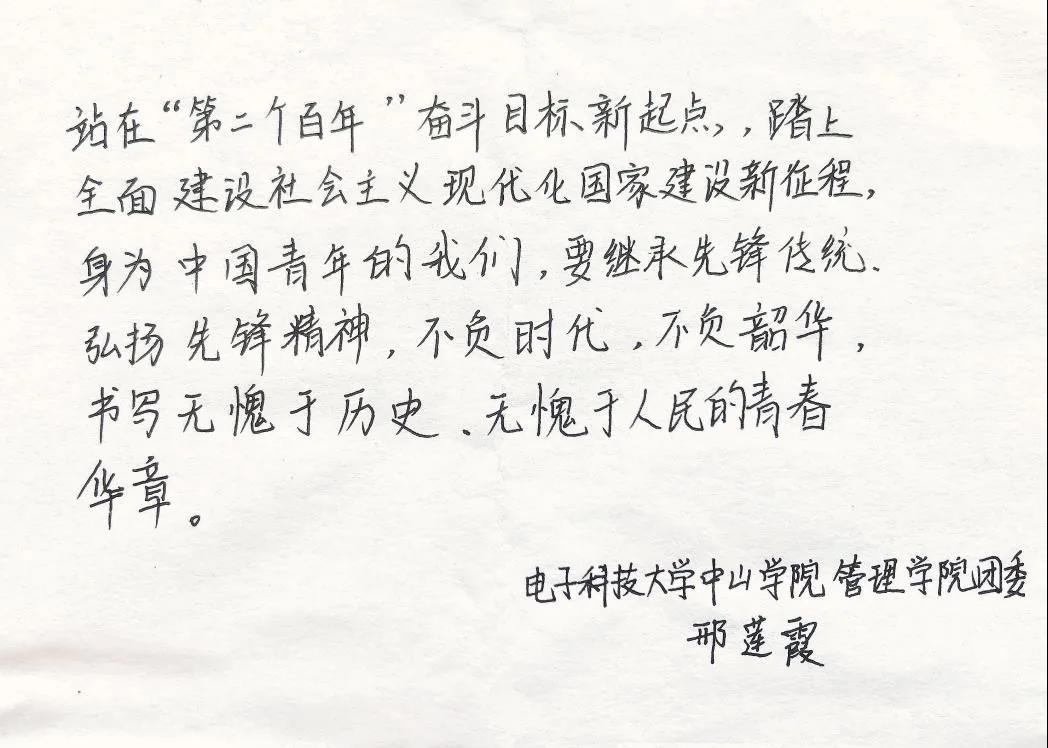 站在“第二个百年”奋斗目标新起点，踏上
全面建设社会主义现代化国家建设新征程，
身为中国青年的我们，要继承先锋传统、
弘扬先锋精神，不负时代，不负韶华，
书写无愧于历史、无愧于人民的青春
华章。
电子科技大学中山学院管理学院团委
邢莲霞